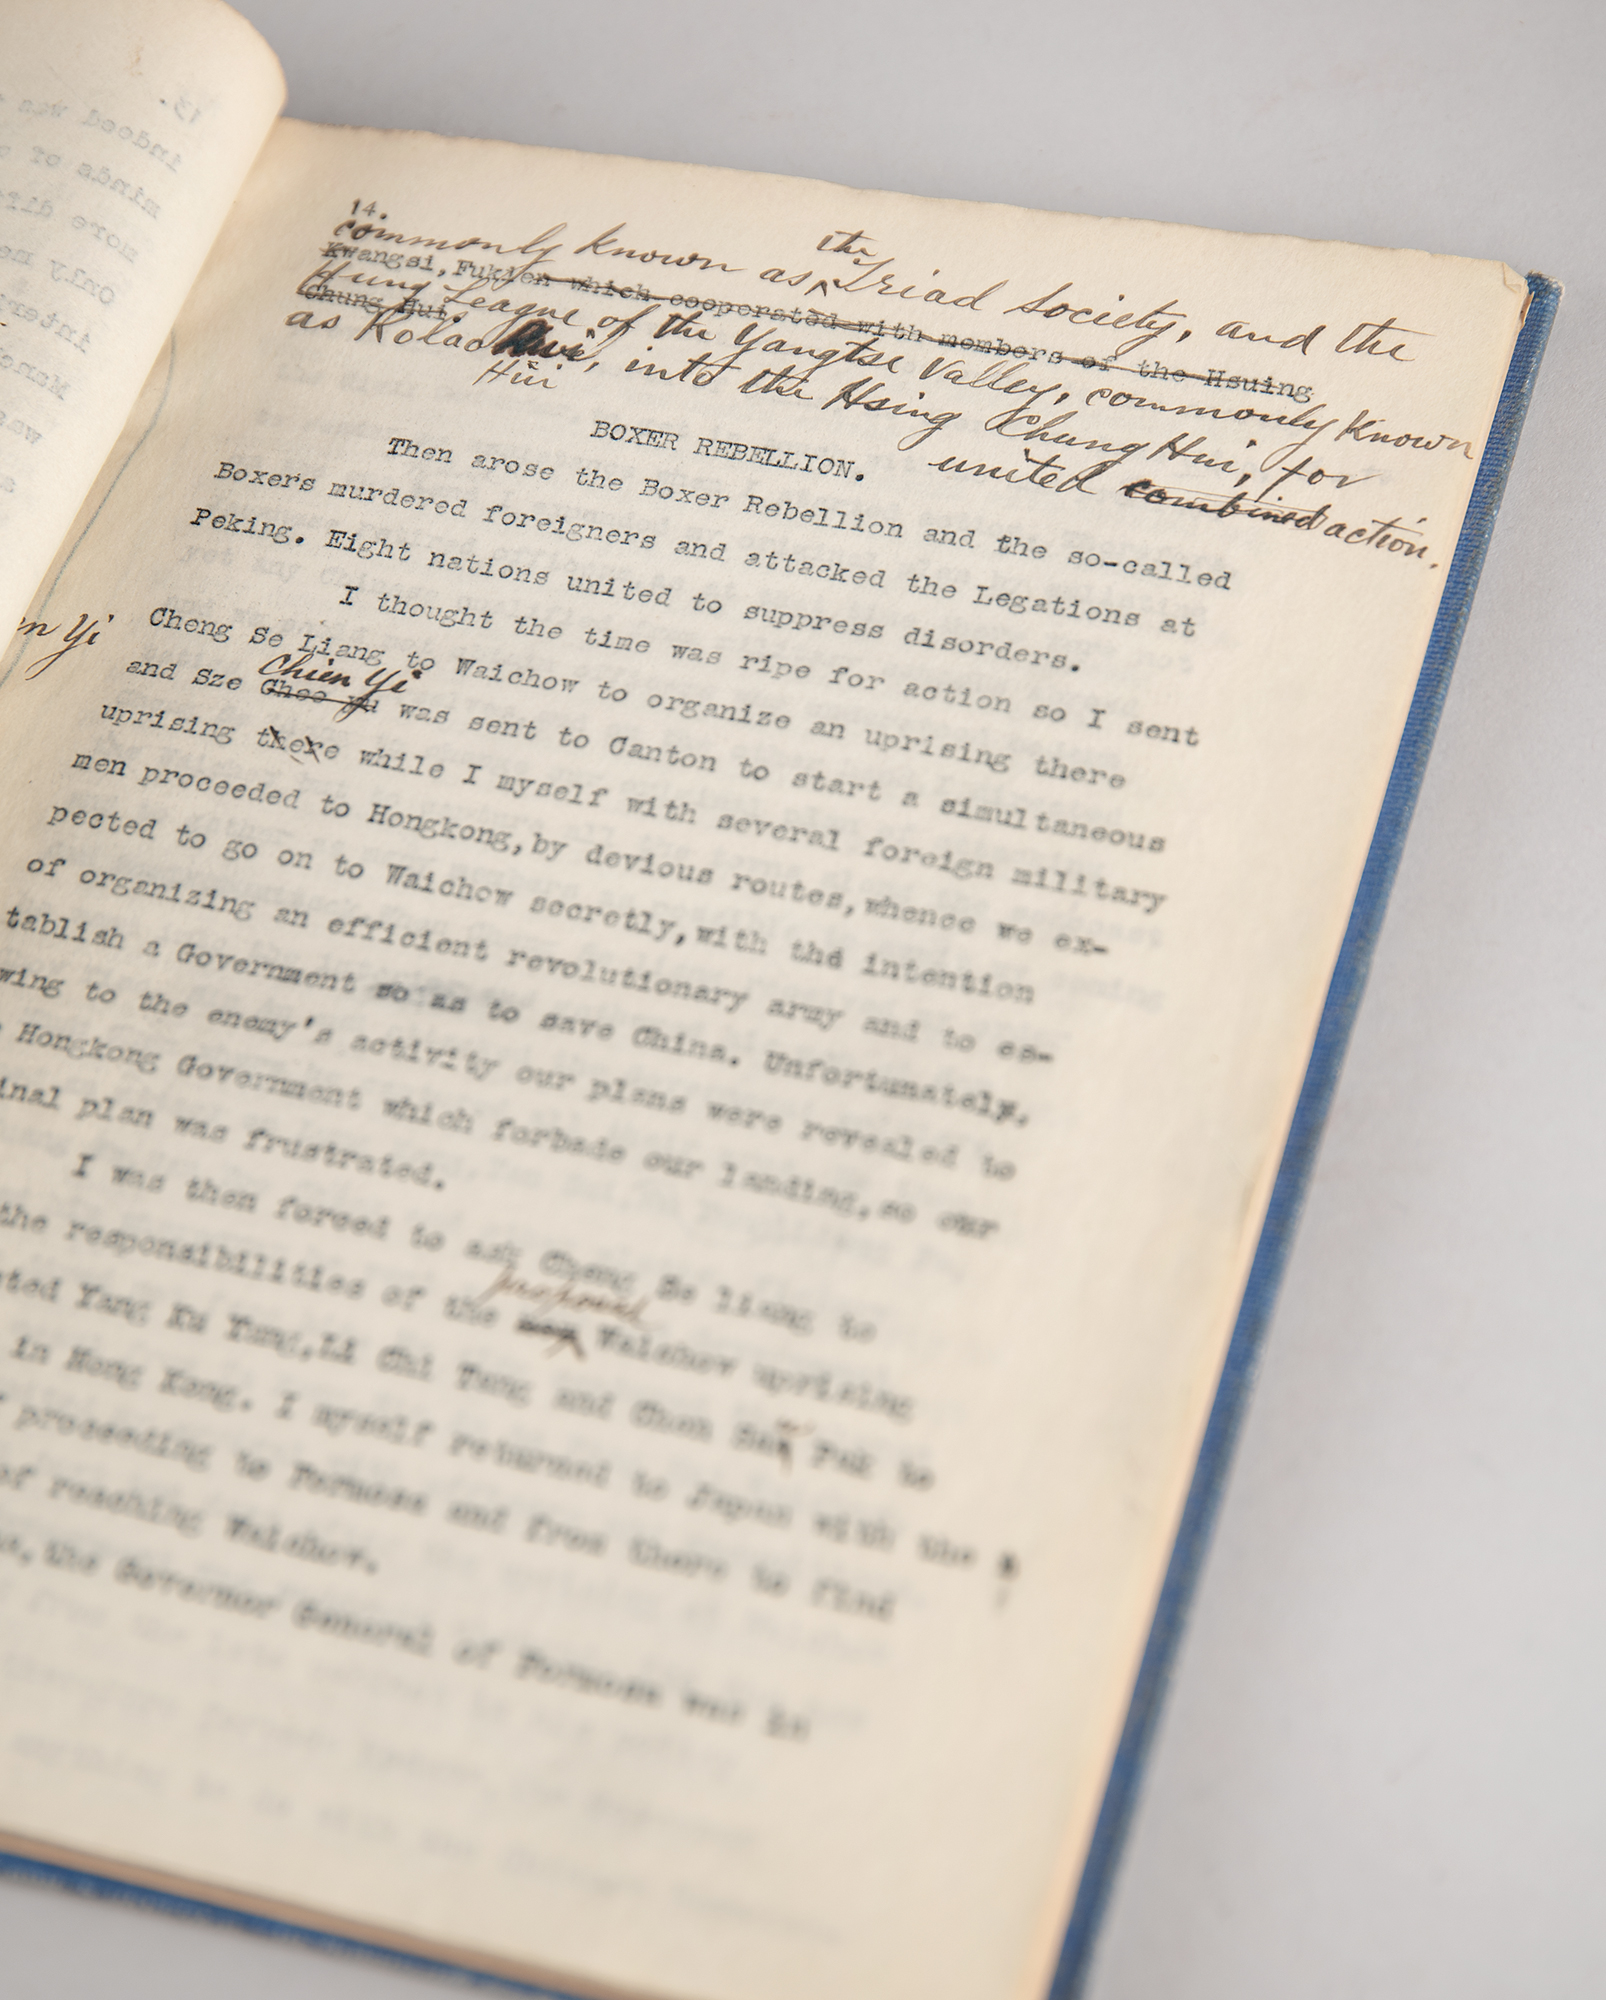 13.
indeed was
minds of
more diff
Only me
interv
Manch
was
14.
commonly known as the Triad Society, and the
Kwangsi, Fukien which cooperated with members of the Hsuing
Chung Hui.
Hung League of the Yangtse Valley, commonly known
as Kolao Hui, into the Hsing Chung Hui, for
Hui
united combined action.
BOXER REBELLION.
Then arose the Boxer Rebellion and the so-called
Boxers murdered foreigners and attacked the Legations at
Peking. Eight nations united to suppress disorders.
I thought the time was ripe for action so I sent
Cheng Se Liang to Waichow to organize an uprising there
n Yi
Chien Yi
and Sze Ghee Yu was sent to Canton to start a simultaneous
uprising there while I myself with several foreign military
men proceeded to Hongkong, by devious routes, whence we ex-
pected to go on to Waichow secretly, with thd intention
of organizing an efficient revolutionary army and to es-
tablish a Government so as to save China. Unfortunately,
wing to the enemy's activity our plans were revealed to
Hongkong Government which forbade our landing, so our
inal plan was frustrated.
I was then forced to ask Cheng Se liang to
proposed
the responsibilities of the Waichow uprising
ted Yang Ku Yung, Li Chi Tung and Chen Pek to
in Hong Kong. I myself returned to Japan with the
proceeding to Formosa and from there to find
of reaching Waichow.
the Governor General of Formosa was in